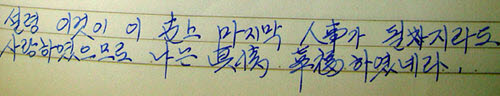 설령 이것이 이 世上 마지막 人事가 될지라도
사랑하였으므로 나는 眞情 幸福하였네라...